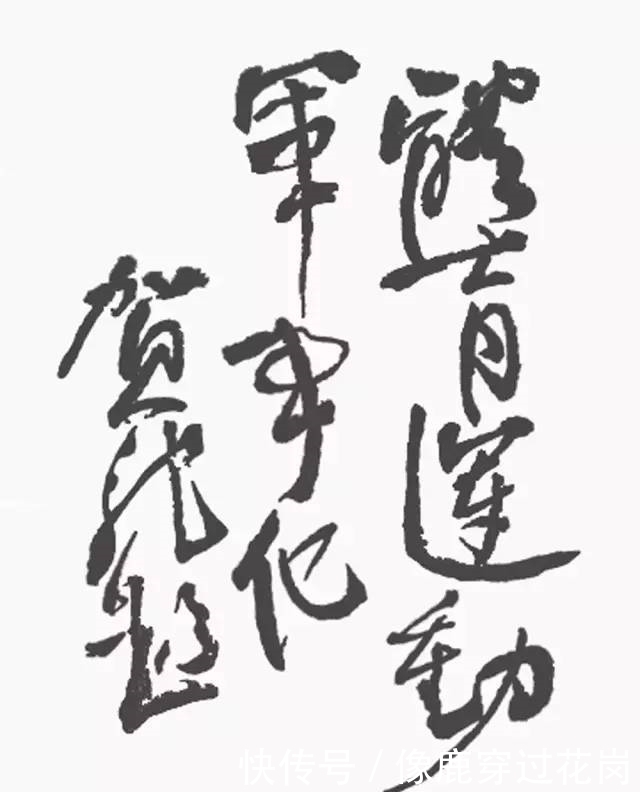 體育運動
軍事化
賀龍題
快传号 / 像鹿穿过花岗